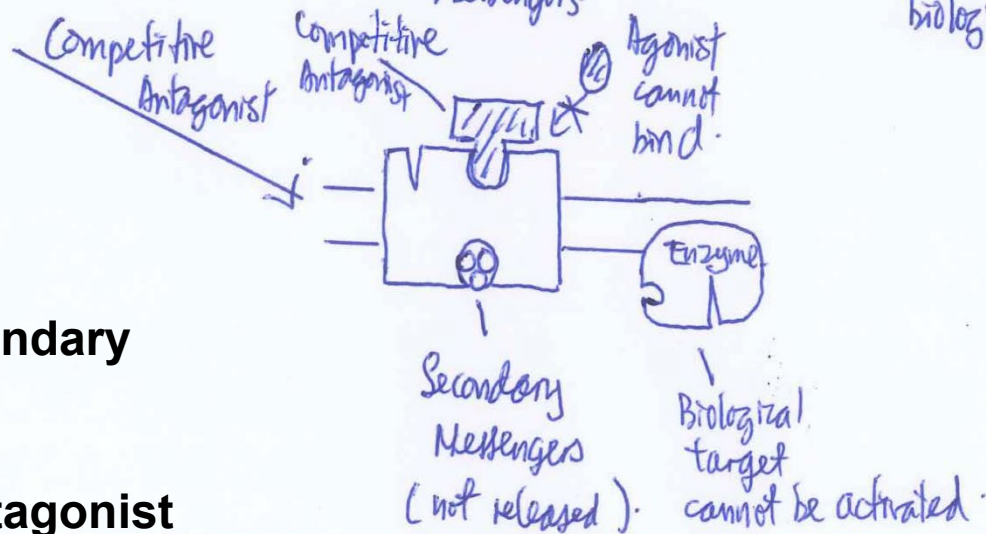 Messengers
biolog
Competitive
Antagonist
Competitive
Antagonist
Agonist
cannot
bind.
Enzyme
ndary
Secondary
Messengers
(not released).
Biological
target
cannot be activated.
tagonist